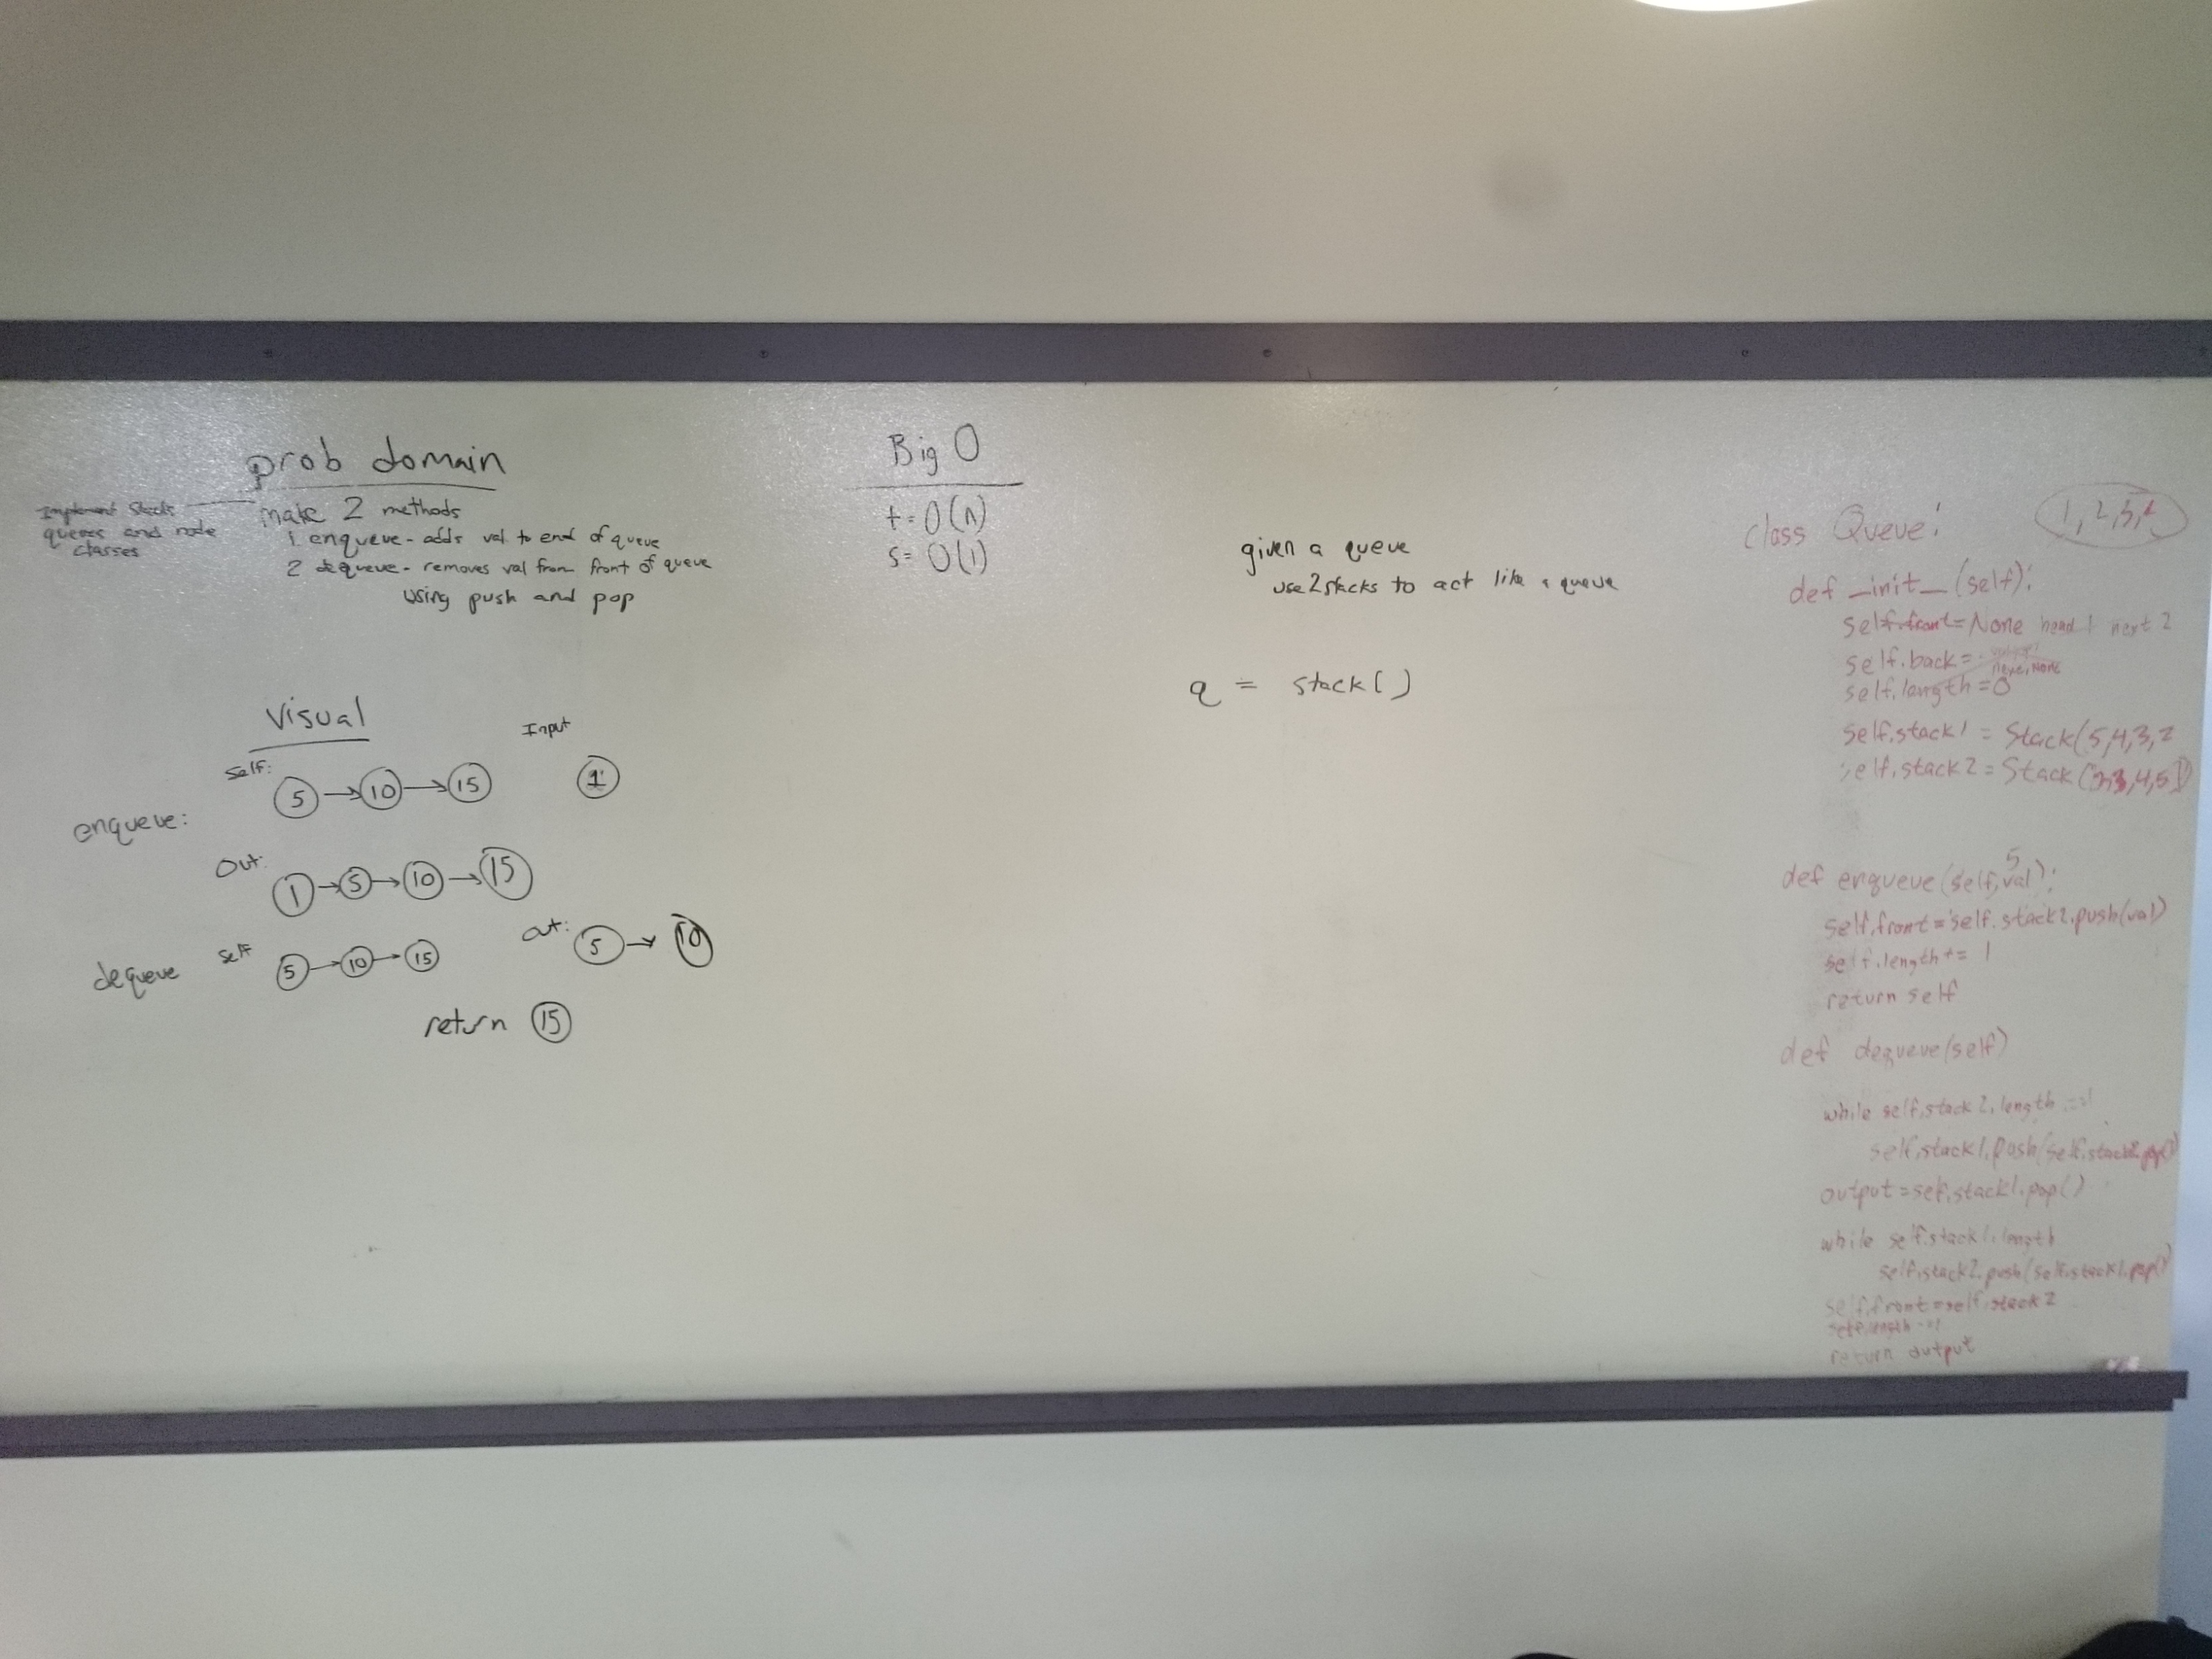 prob domain
Implement Stacks
queues and node
classes
make 2 methods
1. enqueue - adds val to end of queue
2 dequeue - removes val from front of queue
using push and pop
Big O
t = O(n)
s = O(1)
given a queue
use 2 stacks to act like a queue
q = stack()
Visual
Input
Self:
5 → 10 → 15
1
enqueue:
Out:
1 → 5 → 10 → 15
dequeue
Self
5 → 10 → 15
out:
5 → 10
return 15
class Queue:
1, 2, 3,
def _init_(self):
self.front = None head 1 next 2
self.back =
self.length = 0
self.stack1 = Stack(5,4,3,2
self.stack2 = Stack(2,3,4,5)
5
def enqueue(self, val):
self.front = self.stack2.push(val)
self.length += 1
return self
def dequeue(self)
while self.stack2.length
self.stack1.push(self.stack2.pop())
output = self.stack1.pop()
while self.stack1.length
self.stack2.push(self.stack1.pop())
self.front = self.stack2
self.length -= 1
return output